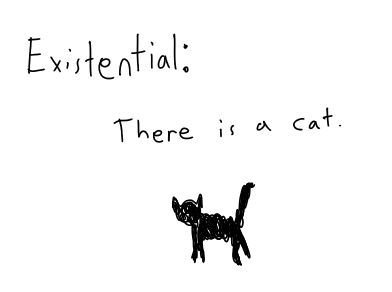 Existential:
There is a cat.